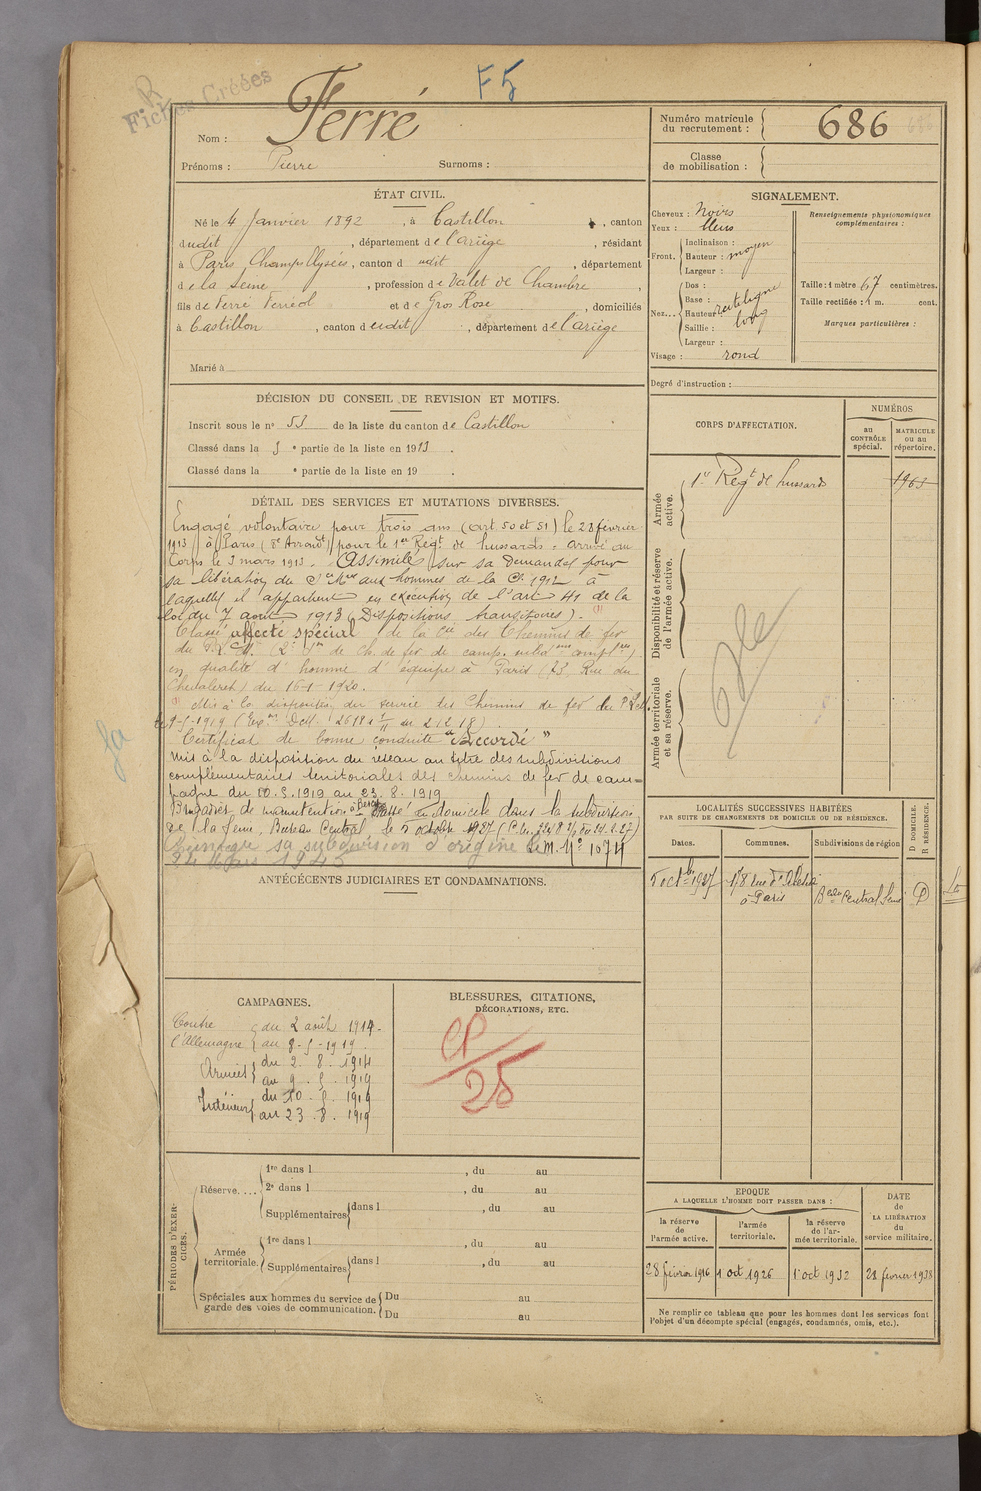 F5
R
Fiches Créées
Nom : Ferré
Prénoms : Pierre Surnoms :
Numéro matricule du recrutement : 686
Classe de mobilisation :
ÉTAT CIVIL.
Né le 4 Janvier 1892, à Castillon, canton
dudit, département de l'ariège, résidant
à Paris Champs Elysées, canton dudit, département
de la Seine, profession de Valet de Chambre,
fils de Ferré Ferréol et de Gros Rose, domiciliés
à Castillon, canton dudit, département de l'ariège
Marié à
SIGNALEMENT.
Cheveux : Noirs
Yeux : bleus
Front. Inclinaison :
Hauteur : moyen
Largeur :
Nez... Dos :
Base :
Hauteur : rectiligne
Saillie : long
Largeur :
Visage : rond
Renseignements physionomiques complémentaires :
Taille : 1 mètre 67 centimètres.
Taille rectifiée : 1 m. cent.
Marques particulières :
Degré d'instruction :
DÉCISION DU CONSEIL DE REVISION ET MOTIFS.
Inscrit sous le n° 53 de la liste du canton de Castillon
Classé dans la 3e partie de la liste en 1913.
Classé dans la e partie de la liste en 19 .
CORPS D'AFFECTATION.
NUMÉROS
au CONTRÔLE spécial.
MATRICULE ou au répertoire.
Armée active.
1er Regt de hussards 1963
Disponibilité et réserve de l'armée active.
Armée territoriale et sa réserve.
DÉTAIL DES SERVICES ET MUTATIONS DIVERSES.
Engagé volontaire pour trois ans (art 50 et 51) le 28 février
1913 à Paris (8e Arrondt) pour le 1er Regt de hussards = arrivé au
Corps le 3 mars 1913. Assimilé sur sa demande pour
sa libération du Sce Mre aux hommes de la Cl. 1912 à
laquelle il appartient en exécution de l'art 41 de la
loi du 7 août 1913 (Dispositions transitoires).
Classé affecté spécial de la Cie des Chemins de fer
du P.L.M. (2e Son de Ch. de fer de camp.
en qualité d'homme d'équipe à Paris (73 Rue du
Chevaleret) du 16-1-1920.
Mis à la disposition du service des Chemins de fer du P.L.M.
le 9-5-1919
Certificat de bonne conduite "Accordé"
Mis à la disposition du réseau au titre des subdivisions
complémentaires territoriales des chemins de fer de cam-
pagne du 10.5.1919 au 23.8.1919
Brigadier de manutention à Bercy Passé au domicile dans la subdivision
de la Seine, Bureau Central, le 5 octobre 1927
Changé sa subdivision d'origine le M. N° 1074
24 Mars 1945
ANTÉCÉDENTS JUDICIAIRES ET CONDAMNATIONS.
LOCALITÉS SUCCESSIVES HABITÉES
PAR SUITE DE CHANGEMENTS DE DOMICILE OU DE RÉSIDENCE.
D DOMICILE.
R RÉSIDENCE.
Dates. Communes. Subdivisions de région
5 octbre 1927 à Paris Beau Central Seine D
CAMPAGNES.
Contre l'Allemagne du 2 août 1914
au 8-5-1919.
Armées du 2.8.1914
au 9.5.1919
Intérieur du 10.5.1919
au 23.8.1919
BLESSURES, CITATIONS,
DÉCORATIONS, ETC.
CP
25
PÉRIODES D'EXERCICES.
Réserve.... 1re dans l , du au
2e dans l , du au
Supplémentaires dans l , du au
Armée territoriale. 1re dans l , du au
Supplémentaires dans l , du au
Spéciales aux hommes du service de Du au
garde des voies de communication. Du au
EPOQUE
A LAQUELLE L'HOMME DOIT PASSER DANS :
la réserve de l'armée active.
l'armée territoriale.
la réserve de l'armée territoriale.
DATE de LA LIBÉRATION du service militaire.
28 février 1916 1 oct 1926 1 oct 1932 28 fevrier 1938
Ne remplir ce tableau que pour les hommes dont les services font
l'objet d'un décompte spécial (engagés, condamnés, omis, etc.).